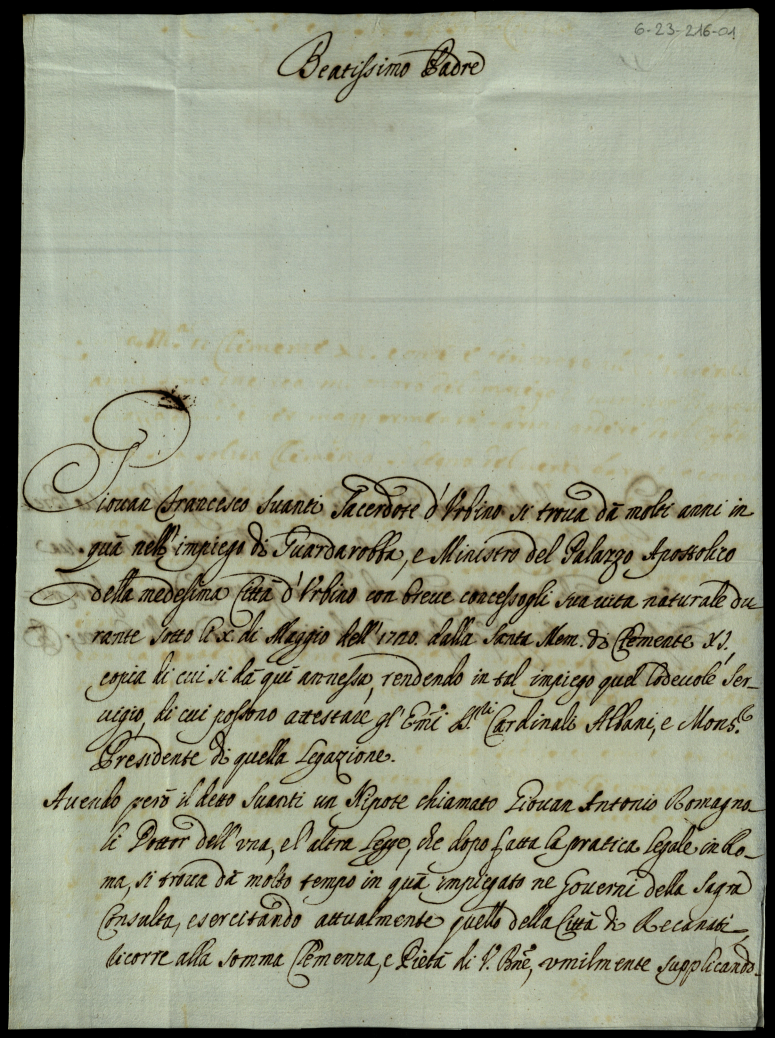 6-23-216-01
Beatissimo Padre
Giovan Francesco Suanti Sacerdote d'Vrbino si troua dà molti anni in
quà nell'impiego di Guardarobba, e Ministro del Palazzo Apostolico
della medesima Città d'Vrbino con breue concessogli sua uita naturale du
rante sotto li x. di Maggio dell'1720. dalla Santa Mem. di Clemente XI.
copia di cui si dà quì annessa, rendendo in tal impiego quel lodeuole ser-
uigio, di cui possono attestare gl'Emi. SS.ri Cardinali Albani, e Mons.r
Presidente di quella Legazione.
Auendo però il detto Suanti un Nipote chiamato Giouan Antonio Romagno
li Dottor dell'vna, e l'altra Legge, che dopo fatta la pratica legale in Ro-
ma, si troua dà molto tempo in quà impiegato ne Gouerni della Sagra
Consulta, esercitando attualmente quello della Città di Recanati,
ricorre alla somma Clemenza, e Pietà di V. Bne, vmilmente supplicando-